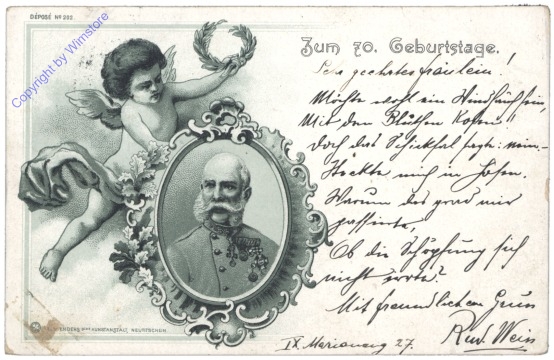 DÉPOSÉ No 202
Copyright by Wimstore
Zum 70. Geburtstage.
Sehr geehrtes Fräulein!
Möchte wohl ein Windhauch sein,
Mit den Blüthen kosen!
doch das Schicksal sagte: nein –
steckte mich in Hosen.
Warum das grad mir
passierte,
Ob die Schöpfung sich
nicht irrte?
Mit freundlichem Gruss
Rud. Wein
IX. 27.
KUNSTANSTALT, NEUTITSCHEIN